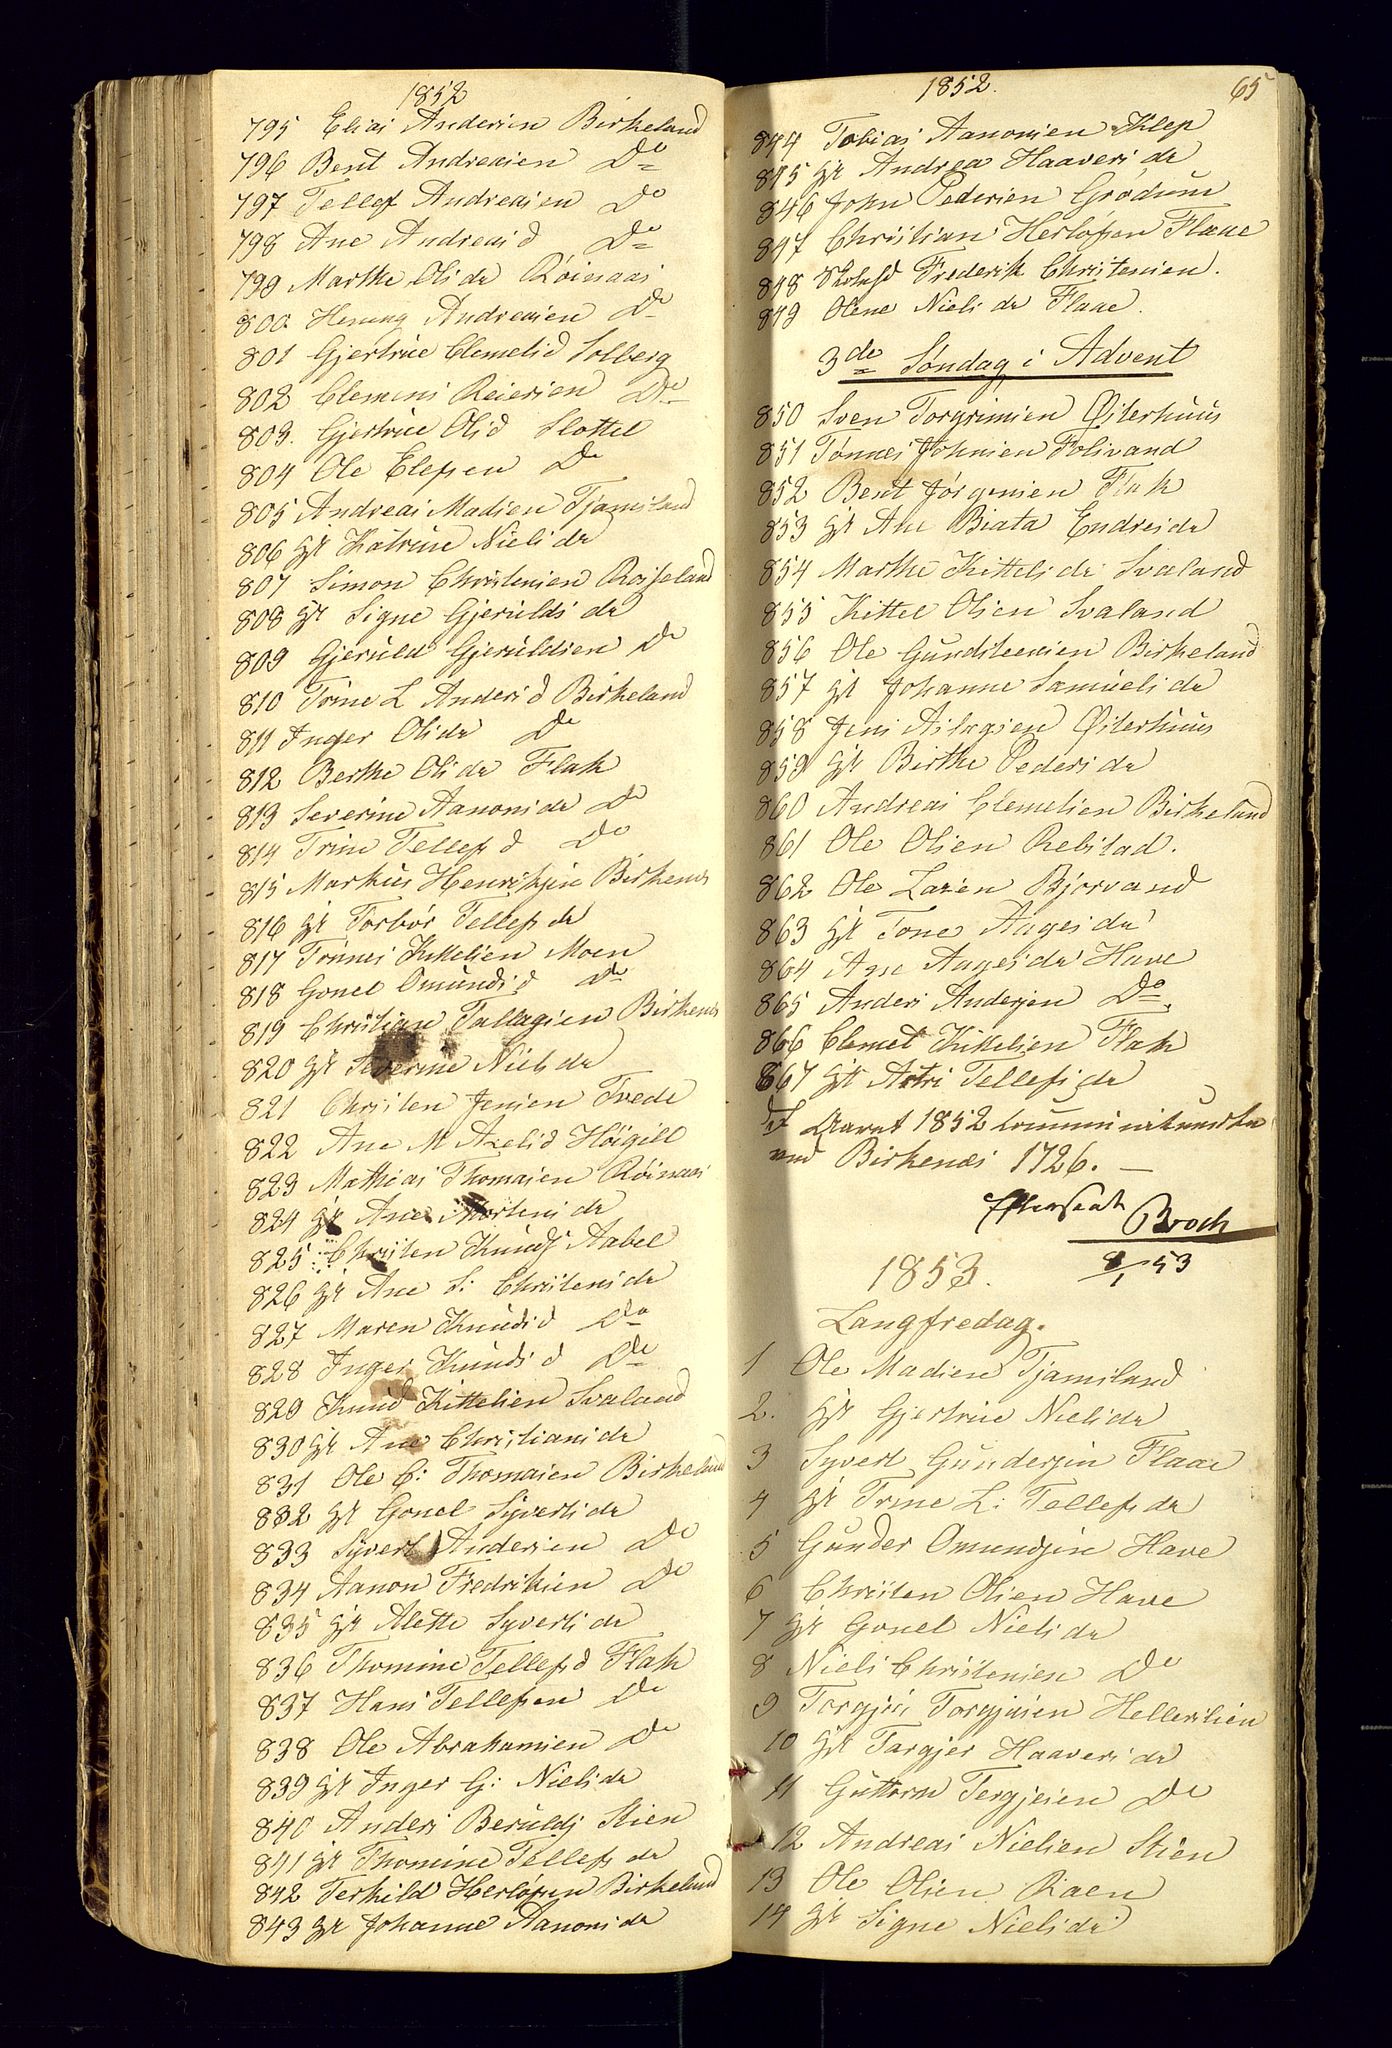 1852
795 Elias Andersen Birkeland
796 Bent Andreasen Do
797 Tellef Andreasen Do
798 Ane Andreasd Do
799 Marthe Olsdr Röisaas
800. Andreasen Do
801 Gjertrue Clemetsd Solberg
802 Clemens Reiersen Do
803. Gjertrue Olsd Slottel
804 Ole Elefsen Do
805 Andreas Madsen Tjamsland
806 Hr Katrine Nielsdr
807 Simon Christensen Roiseland
808 Hr Signe Gjeruldsdr
809 Gjeruld Gjeruldsen Do
810 Trine L Andersd Birkeland
811 Inger Olsdr Do
812 Berthe Olsdr Flak
813 Severine Aanonsdr Do
814 Trine Tellefsd Do
815 Markus Henriksen Birkenes
816 Hr Torbör Tellefsdr
817 Tönnes Kittelsen Moen
818 Gonel Omundsd Do
819 Christian Tallagsen Birkenes
820 Hr Severine Nielsdr
821 Christen Jensen Tvede
822 Ane M Axelsd Höigilt
823 Mathias Thomasen Röisnaas
824 Hr Ane Mortensdr
825 Christen Knuds Aabel
826 Hr Ane S: Christensdr
827 Maren Knudsd Do
828 Inger Knudsd Do
829 Knud Kittelsen Svaland
830 Hr Ane Christiansdr
831 Ole C: Thomasen Birkeland
832 Hr Gonel Syvertsdr
833 Syvert Andersen Do
834 Aanon Fredriksen Do
835 Hr Alette Syvertsdr
836 Thomine Tellefsd Flak
837 Hans Tellefsen Do
838 Ole Abrahamsen Do
839 Hr Inger G: Nielsdr
840 Anders Beruldsj Stien
841 Hr Thomine Tellefsdr
842 Terkild Herlofsen Birkeland
843 Hr Johanne Aanonsdr
1852. 65
844 Tobias Aanonsen Klep
845 Hr Andrea Haaversdr
846 John Pedersen Grödum
847 Christian Herlöfsen Flaae
848 Frederik Christensen.
849 Olene Nielsdr Flaae.
3de Søndag i Advent
850 Sven Torgrimsen Østerhuus
851 Tönnes Johnsen Folivand
852 Bent Jörgensen Flak
853 Hr Ane Biata Endresdr
854 Marthe Kittelsdr Svaland
855 Kittel Olsen Svaland
856 Ole Gundsteensen Birkeland
857 Hr Johanne Samuelsdr
858 Jens Aslagsen Østerhuus
859 Hr Birthe Pedersdr
860 Andreas Clemetsen Birkeland
861 Ole Olsen Rebstad.
862 Ole Larsen Bjorvand
863 Hr Tone Aagesdr
864 Ane Aagesdr Have
865 Anders Andersen Do.
866 Clemet Kittelsen Flak
867 Hr Astri Tellefsdr
Aaret 1852 communicerende
ved Birkenes 1726. —
Efterseet Broch
8/1 53
1853.
Langfredag.
1 Ole Madsen Tjamsland
2. Hr Gjertrue Nielsdr
3 Syvert Gundersen Flaae
4 Hr Trine L: Tellefsdr
5 Gunder Omundsen Have
6 Christen Olsen Have
7 Hr Gonel Nielsdr
8 Niels Christensen Do
9 Torgjus Torgjusen Hellerslien
10 Hr Targjer Haaversdr
11 Guttorm Tergjesen Do
12 Andreas Nielsen Stien
13 Ole Olsen Raen
14 Hr Signe Nielsdr